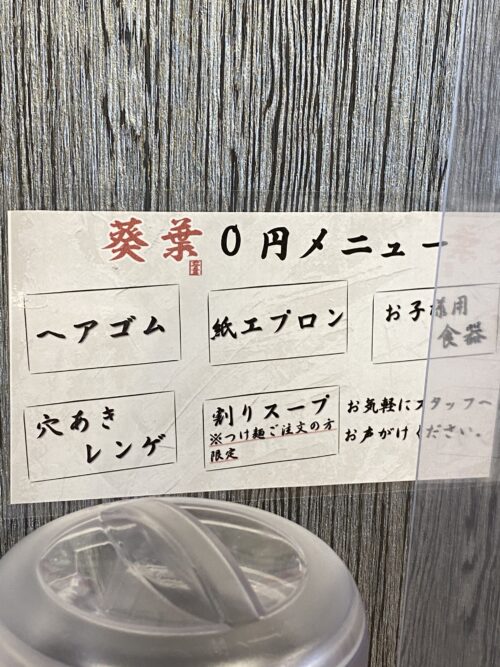 葵葉 0円メニュー
ヘアゴム
紙エプロン
お子様用
食器
穴あき
レンゲ
割りスープ
※つけ麺ご注文の方
限定
お気軽にスタッフへ
お声がけください。